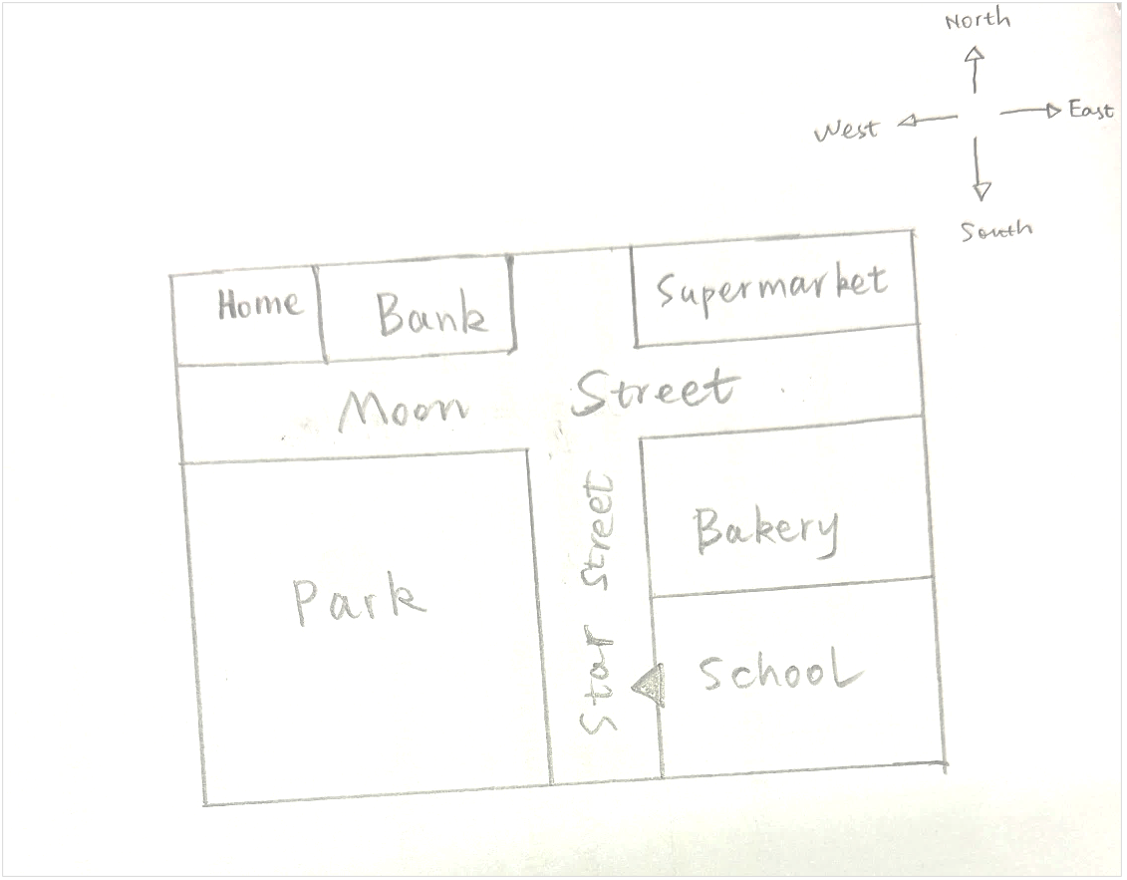 North
West
East
South
Home
Bank
Supermarket
Moon Street
Star Street
Bakery
Park
School